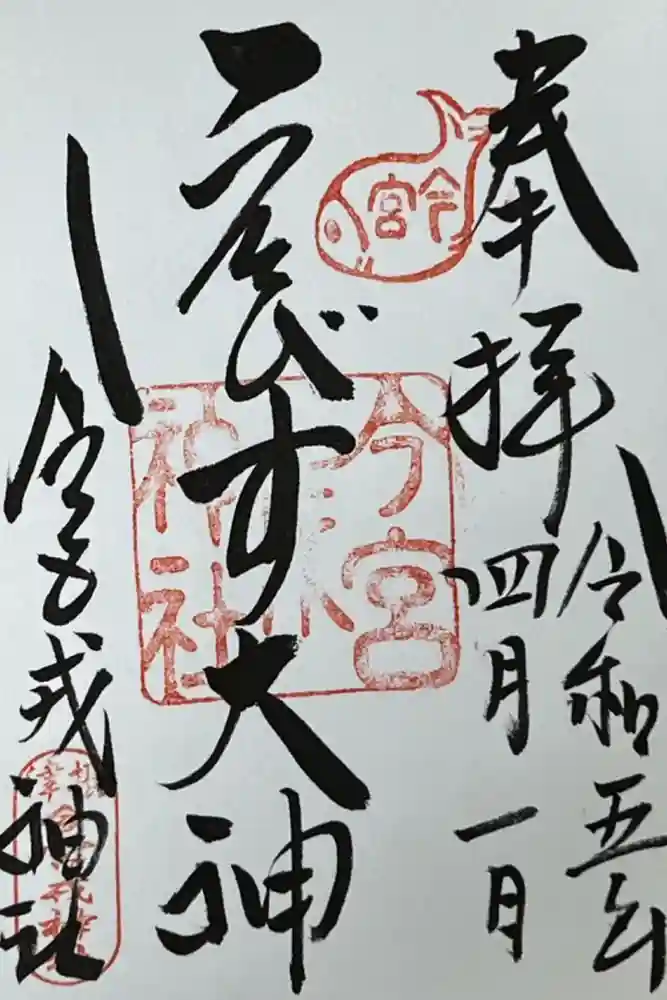 奉拝
令和五年
四月一日
今宮
えびす大神
今宮
神社
今宮戎神社